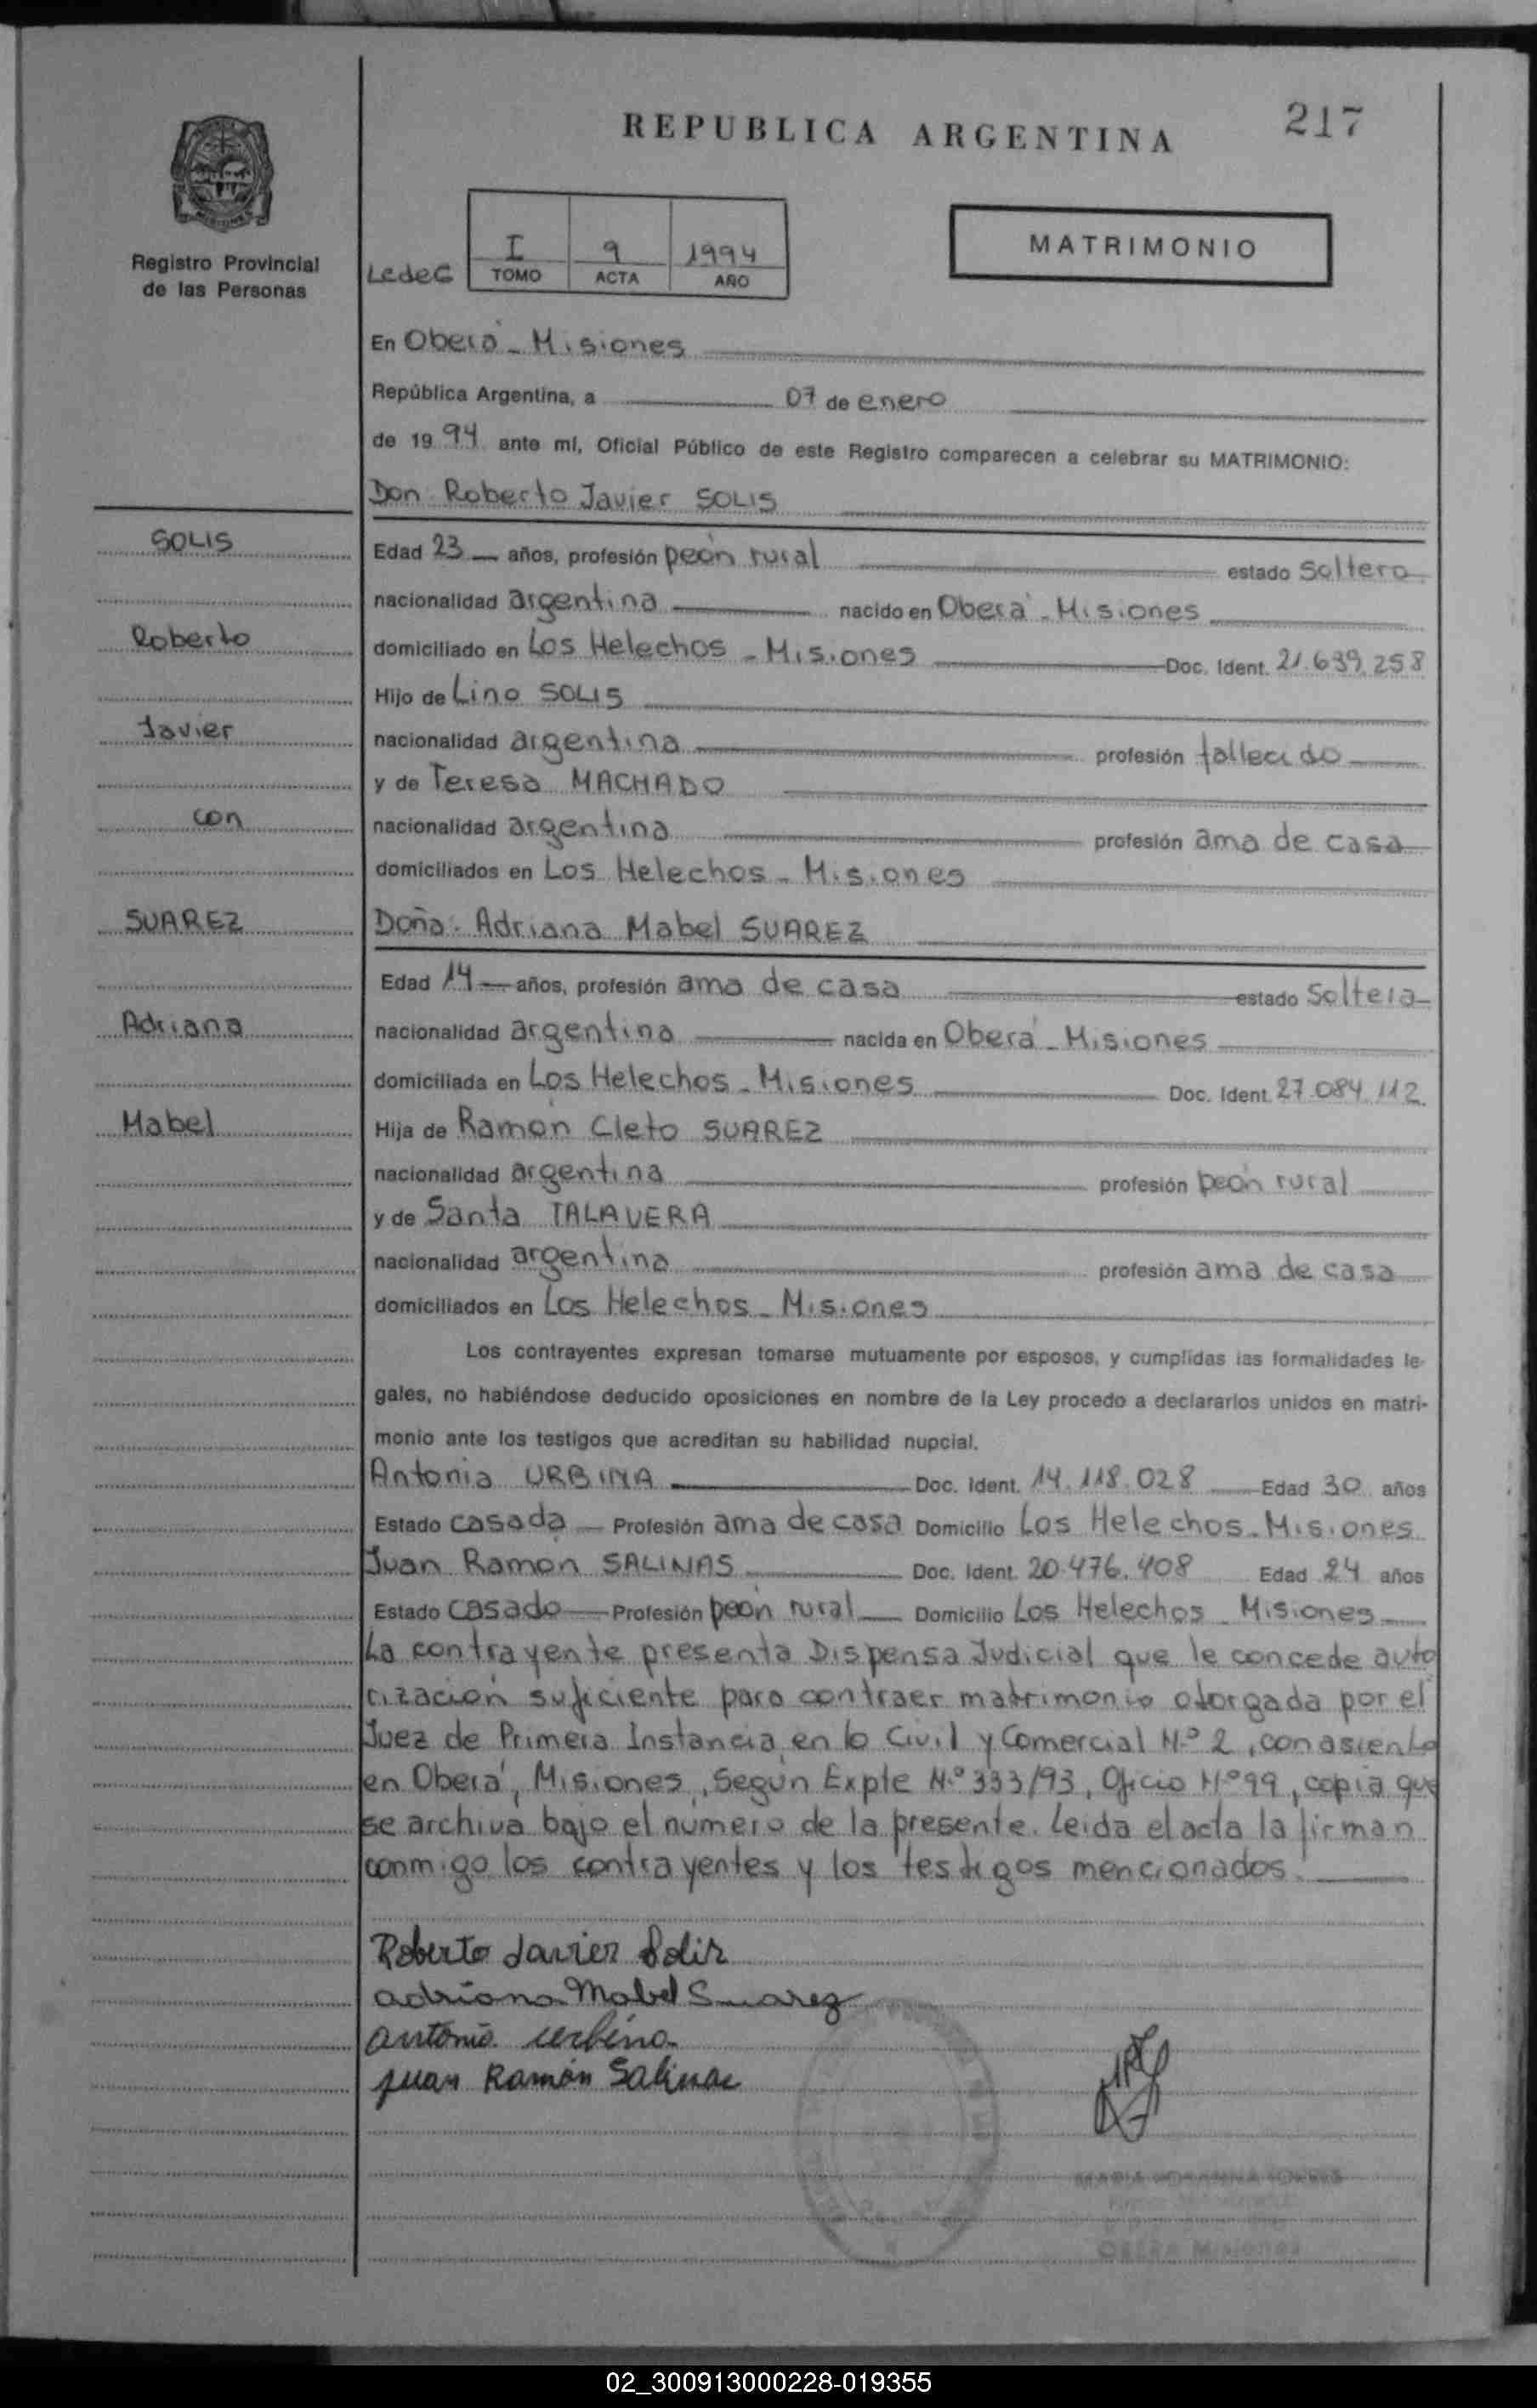 REPUBLICA ARGENTINA
217
Registro Provincial
de las Personas
LedeC
I 9 1994
TOMO ACTA AÑO
MATRIMONIO
En Oberá - Misiones
República Argentina, a 07 de enero
de 19 94 ante mí, Oficial Público de este Registro comparecen a celebrar su MATRIMONIO:
Don: Roberto Javier SOLIS
SOLIS
Roberto
Javier
con
SUAREZ
Adriana
Mabel
Edad 23 años, profesión peón rural estado soltero
nacionalidad argentina nacido en Oberá - Misiones
domiciliado en Los Helechos - Misiones Doc. Ident. 21.639.258
Hijo de Lino SOLIS
nacionalidad argentina profesión fallecido
y de Teresa MACHADO
nacionalidad argentina profesión ama de casa
domiciliados en Los Helechos - Misiones
Doña: Adriana Mabel SUAREZ
Edad 14 años, profesión ama de casa estado soltera
nacionalidad argentina nacida en Oberá - Misiones
domiciliada en Los Helechos - Misiones Doc. Ident. 27.084.112
Hija de Ramón Cleto SUAREZ
nacionalidad argentina profesión peón rural
y de Santa TALAVERA
nacionalidad argentina profesión ama de casa
domiciliados en Los Helechos - Misiones
Los contrayentes expresan tomarse mutuamente por esposos, y cumplidas las formalidades le-
gales, no habiéndose deducido oposiciones en nombre de la Ley procedo a declararlos unidos en matri-
monio ante los testigos que acreditan su habilidad nupcial.
Antonia URBINA Doc. Ident. 14.118.028 Edad 30 años
Estado casada Profesión ama de casa Domicilio Los Helechos - Misiones
Juan Ramón SALINAS Doc. Ident. 20.476.408 Edad 24 años
Estado casado Profesión peón rural Domicilio Los Helechos - Misiones
La contrayente presenta Dispensa Judicial que le concede auto
rización suficiente para contraer matrimonio otorgada por el
Juez de Primera Instancia en lo Civil y Comercial Nº 2, con asiento
en Oberá, Misiones, Según Expte Nº 333/93, Oficio Nº 99, copia que
se archiva bajo el número de la presente. Leida el acta la firman
conmigo los contrayentes y los testigos mencionados.
Roberto Javier Solis
Adriana Mabel Suarez
Antonia Urbina
Juan Ramón Salinas
MARIA
OBERA Misiones
02_300913000228-019355